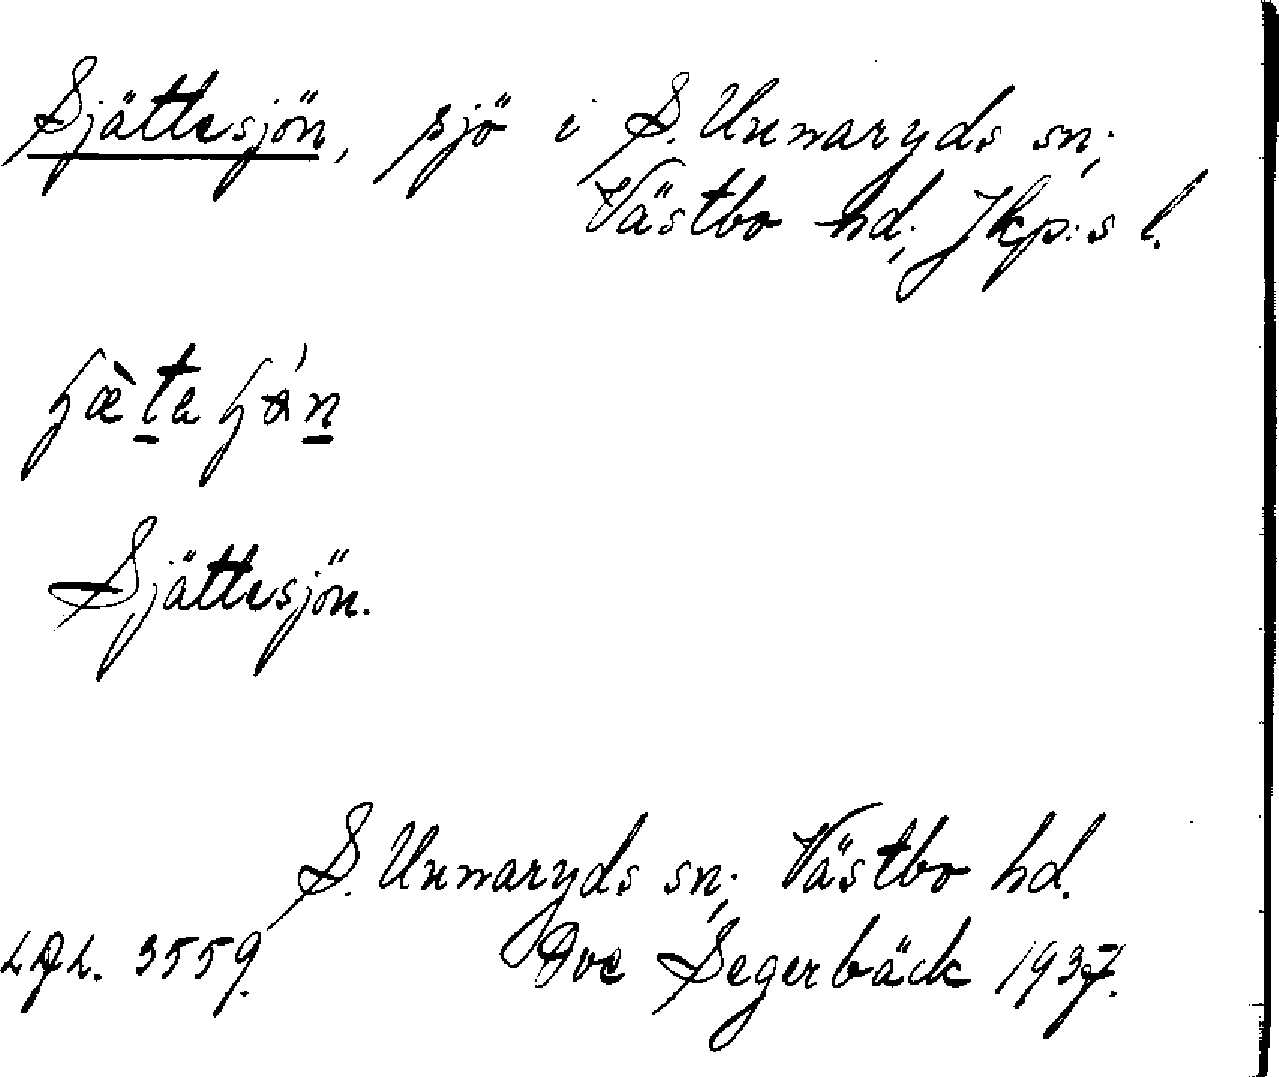 Sjättesjön, sjö i S. Unnaryds sn.,
Västbo hd., Jkp:s l.
Sjättesjön.
S. Unnaryds sn., Västbo hd.
3559. Ove Segerbäck 1937.